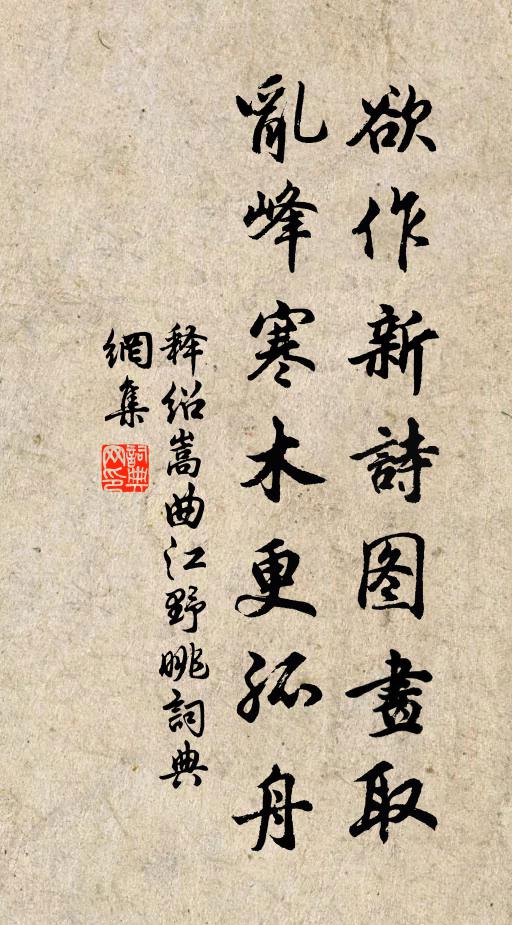 欲作新詩图畫取
亂峰寒木更孤舟
释绍嵩曲江野眺詞典
網集
詞典网印